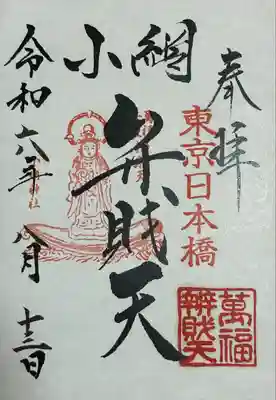 奉拝
東京日本橋
小網
弁財天
萬福
辨財天
令和六年八月十三日